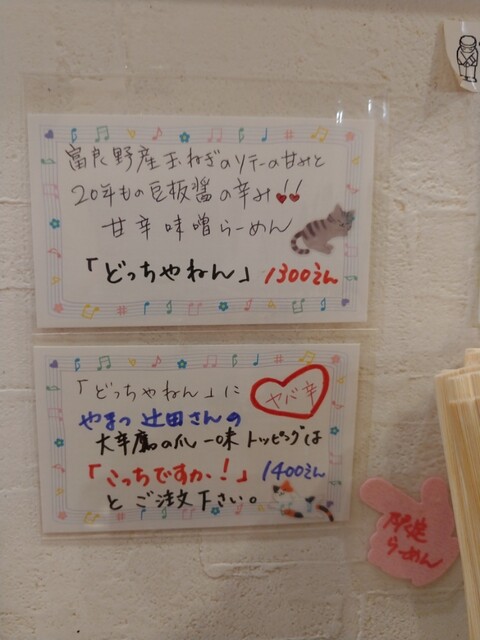 富良野産玉ねぎのソテーの甘みと
20年もの豆板醤の辛み!!
甘辛味噌らーめん
「どっちやねん」 1300えん
「どっちやねん」に ヤバ辛
やまつ辻田さんの
大辛鷹の爪一味トッピングは
「こっちですか!」 1400えん
とご注文下さい。
限定
らーめん